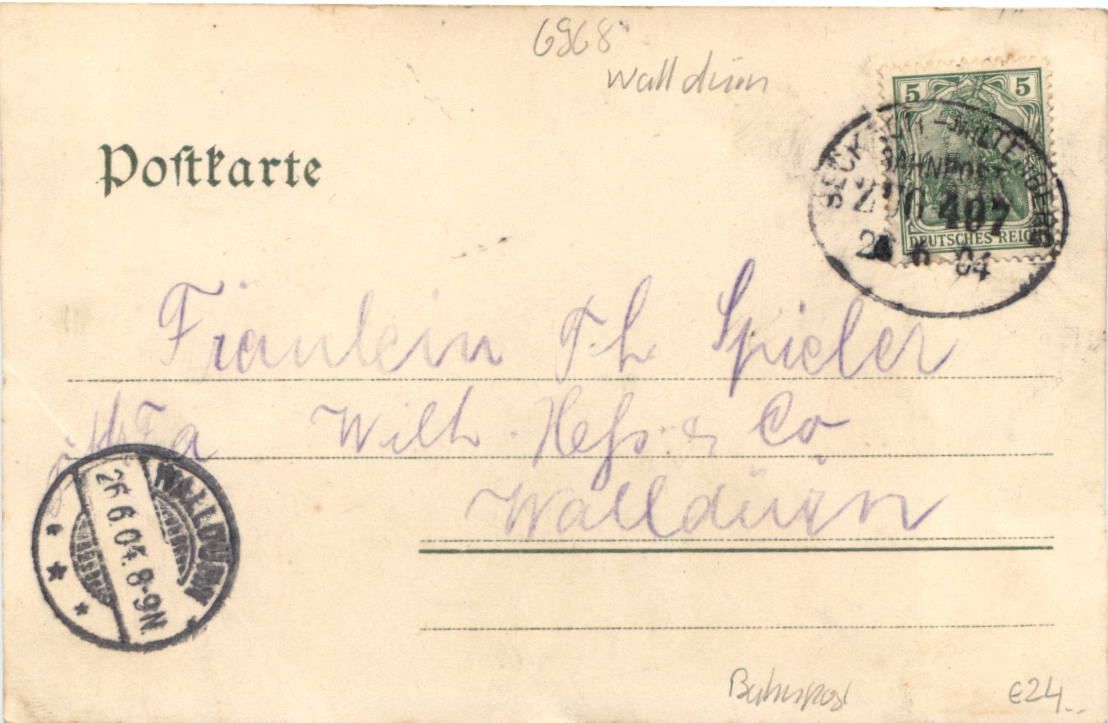 6968
Walldürn
Postkarte
5 5
SECKACH-MILTENBERG
BAHNPOST
ZUG 407
6 04
DEUTSCHES REICH
Fräulein Th Spieler
Fa Wilh. Heß & Co
Walldürn
WALLDÜRN
26.6.04. 8-9N.
Bahnpost
€24..